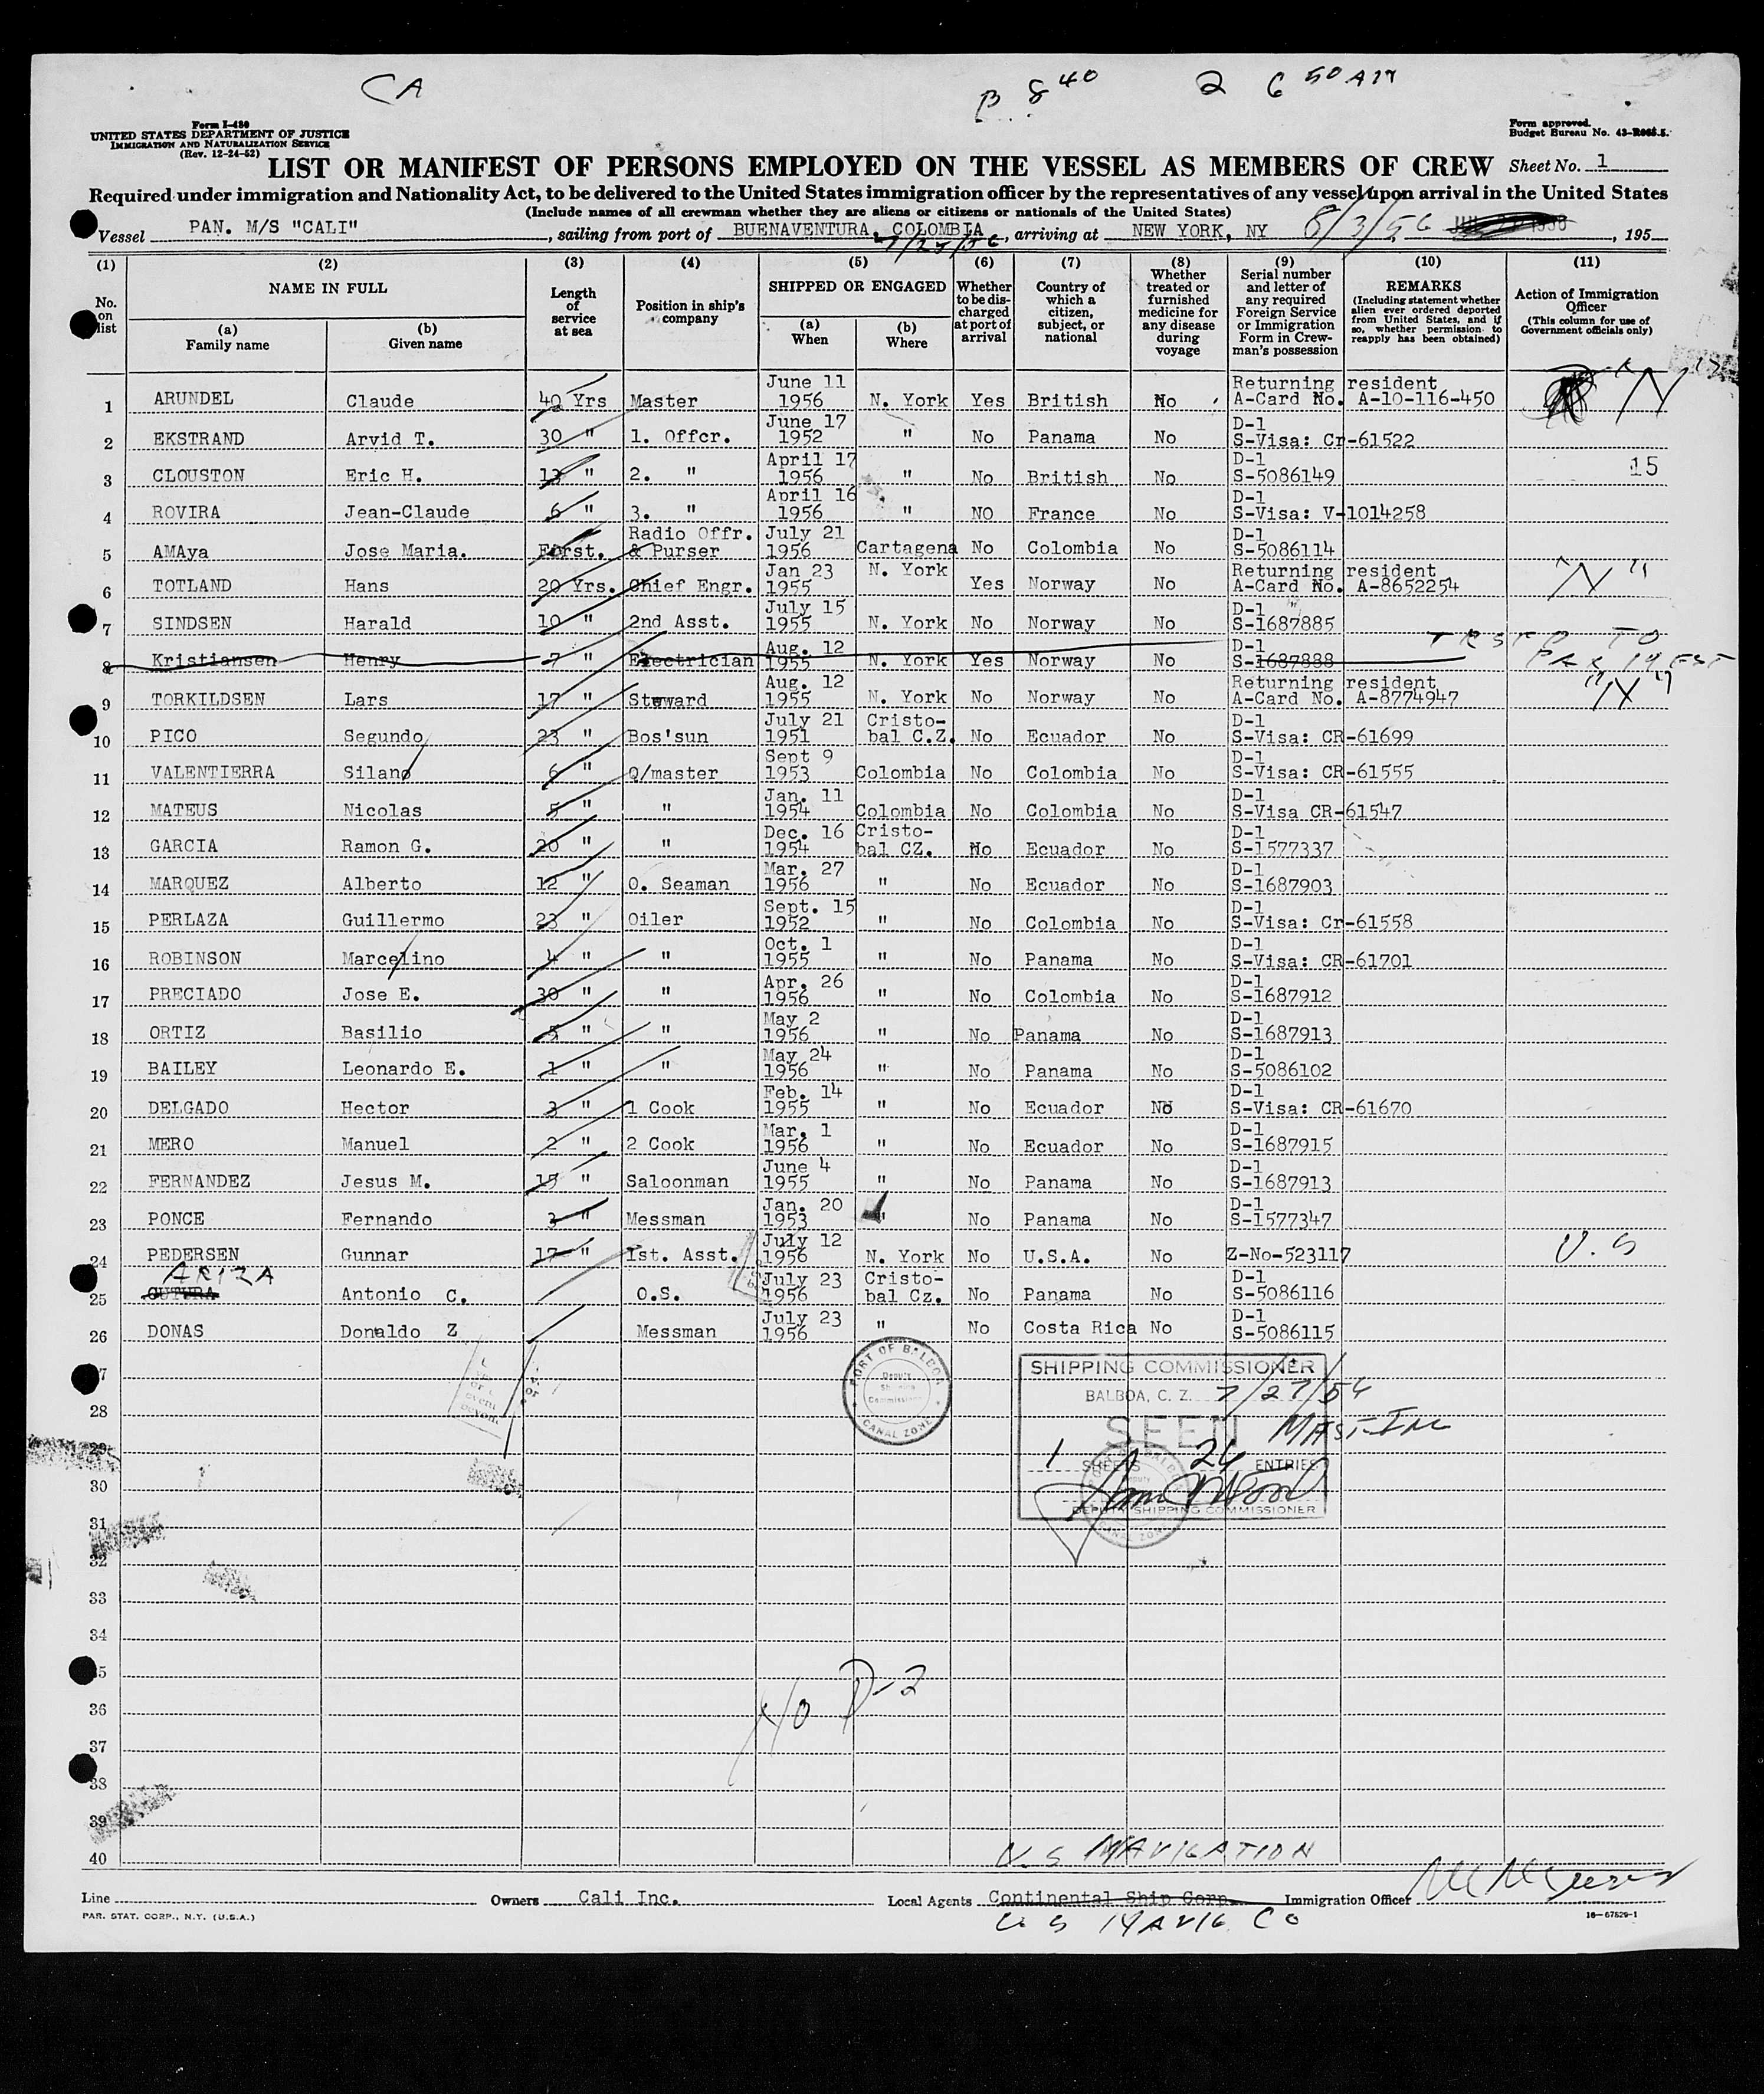 CA
B 8 40 2 6 50 AM
Form I-480
UNITED STATES DEPARTMENT OF JUSTICE
IMMIGRATION AND NATURALIZATION SERVICE
(Rev. 12-24-52)
Form approved.
Budget Bureau No. 43-R065.5.
LIST OR MANIFEST OF PERSONS EMPLOYED ON THE VESSEL AS MEMBERS OF CREW Sheet No. 1
Required under immigration and Nationality Act, to be delivered to the United States immigration officer by the representatives of any vessel upon arrival in the United States
(Include names of all crewman whether they are aliens or citizens or nationals of the United States)
Vessel PAN. M/S "CALI", sailing from port of BUENAVENTURA, COLOMBIA, arriving at NEW YORK, NY 8/3/56, 195
(1) No. on list
(2) NAME IN FULL (a) Family name (b) Given name
(3) Length of service at sea
(4) Position in ship's company
(5) SHIPPED OR ENGAGED (a) When (b) Where
(6) Whether to be discharged at port of arrival
(7) Country of which a citizen, subject, or national
(8) Whether treated or furnished medicine for any disease during voyage
(9) Serial number and letter of any required Foreign Service or Immigration Form in Crewman's possession
(10) REMARKS (Including statement whether alien ever ordered deported from United States, and if so, whether permission to reapply has been obtained)
(11) Action of Immigration Officer (This column for use of Government officials only)
1 ARUNDEL Claude 40 Yrs Master June 11 1956 N. York Yes British No Returning resident A-Card No. A-10-116-450 "N"
2 EKSTRAND Arvid T. 30 " 1. Offcr. June 17 1952 " No Panama No D-1 S-Visa: Cr-61522
3 CLOUSTON Eric H. 13 " 2. " April 17 1956 " No British No D-1 S-5086149 15
4 ROVIRA Jean-Claude 6 " 3. " April 16 1956 " NO France No D-1 S-Visa: V-1014258
5 AMAya Jose Maria. Forst. Radio Offr. & Purser July 21 1956 Cartagena No Colombia No D-1 S-5086114
6 TOTLAND Hans 20 Yrs. Chief Engr. Jan 23 1955 N. York Yes Norway No Returning resident A-Card No. A-8652254 "N"
7 SINDSEN Harald 10 " 2nd Asst. July 15 1955 N. York No Norway No D-1 S-1687885
8 Kristiansen Henry 7 " Electrician Aug. 12 1955 N. York Yes Norway No D-1 S-1687888 TRSFD TO
9 TORKILDSEN Lars 17 " Steward Aug. 12 1955 N. York No Norway No Returning resident A-Card No. A-8774947 "N"
10 PICO Segundo 23 " Bos'sun July 21 1951 Cristobal C.Z. No Ecuador No D-1 S-Visa: CR-61699
11 VALENTIERRA Silano 6 " Q/master Sept 9 1953 Colombia No Colombia No D-1 S-Visa: CR-61555
12 MATEUS Nicolas 5 " " Jan. 11 1954 Colombia No Colombia No D-1 S-Visa CR-61547
13 GARCIA Ramon G. 20 " " Dec. 16 1954 Cristobal CZ. No Ecuador No D-1 S-1577337
14 MARQUEZ Alberto 12 " O. Seaman Mar. 27 1956 " No Ecuador No D-1 S-1687903
15 PERLAZA Guillermo 23 " Oiler Sept. 15 1952 " No Colombia No D-1 S-Visa: Cr-61558
16 ROBINSON Marcelino 4 " " Oct. 1 1955 " No Panama No D-1 S-Visa: CR-61701
17 PRECIADO Jose E. 30 " " Apr. 26 1956 " No Colombia No D-1 S-1687912
18 ORTIZ Basilio 5 " " May 2 1956 " No Panama No D-1 S-1687913
19 BAILEY Leonardo E. 1 " " May 24 1956 " No Panama No D-1 S-5086102
20 DELGADO Hector 3 " 1 Cook Feb. 14 1955 " No Ecuador No D-1 S-Visa: CR-61670
21 MERO Manuel 2 " 2 Cook Mar. 1 1956 " No Ecuador No D-1 S-1687915
22 FERNANDEZ Jesus M. 15 " Saloonman June 4 1955 " No Panama No D-1 S-1687913
23 PONCE Fernando 3 " Messman Jan. 20 1953 " No Panama No D-1 S-1577347
24 PEDERSEN Gunnar 17 " 1st. Asst. July 12 1956 N. York No U.S.A. No Z-No-523117 U.S
ARIZA
25 Antonio C. O.S. July 23 1956 Cristobal Cz. No Panama No D-1 S-5086116
26 DONAS Donaldo Z Messman July 23 1956 " No Costa Rica No D-1 S-5086115
PORT OF BALBOA
Deputy Shipping Commissioner
CANAL ZONE
SHIPPING COMMISSIONER
BALBOA, C. Z. 7/27/56
SEEN
1 SHEETS 24 ENTRIES
DEPUTY SHIPPING COMMISSIONER
28
29
30
31
32
33
34
35
36
37
38
39
40
NO D-2
U.S NAVIGATION
Line Owners Cali Inc. Local Agents Continental Ship Corp. Immigration Officer
U S NAVIG. CO
PAR. STAT. CORP., N.Y. (U.S.A.)
16-67529-1